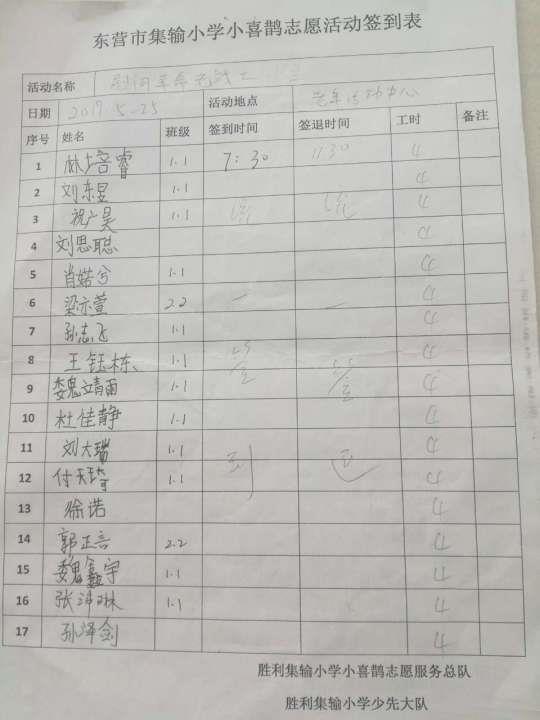 东营市集输小学小喜鹊志愿活动签到表
活动名称 慰问革命老战士
日期 2019.5-25 活动地点 老年活动中心
序号 姓名 班级 签到时间 签退时间 工时 备注
1 林培睿 1.1 7:30 11 30 4
2 刘东昱 1.1 4
3 祝广昊 1.1 4
4 刘思聪 4
5 肖婼兮 1.1 4
6 梁亦萱 2.2 4
7 孙志飞 1.1 4
8 王钰栋 1.1 4
9 娄靖雨 1.1 4
10 杜佳静 1.1 4
11 刘大瑞 1.1 4
12 付天琦 1.1 到 4
13 徐诺 4
14 郭正言 2.2 4
15 魏鑫宇 1.1 4
16 张琳 1.1 4
17 孙泽剑 4
胜利集输小学小喜鹊志愿服务总队
胜利集输小学少先大队